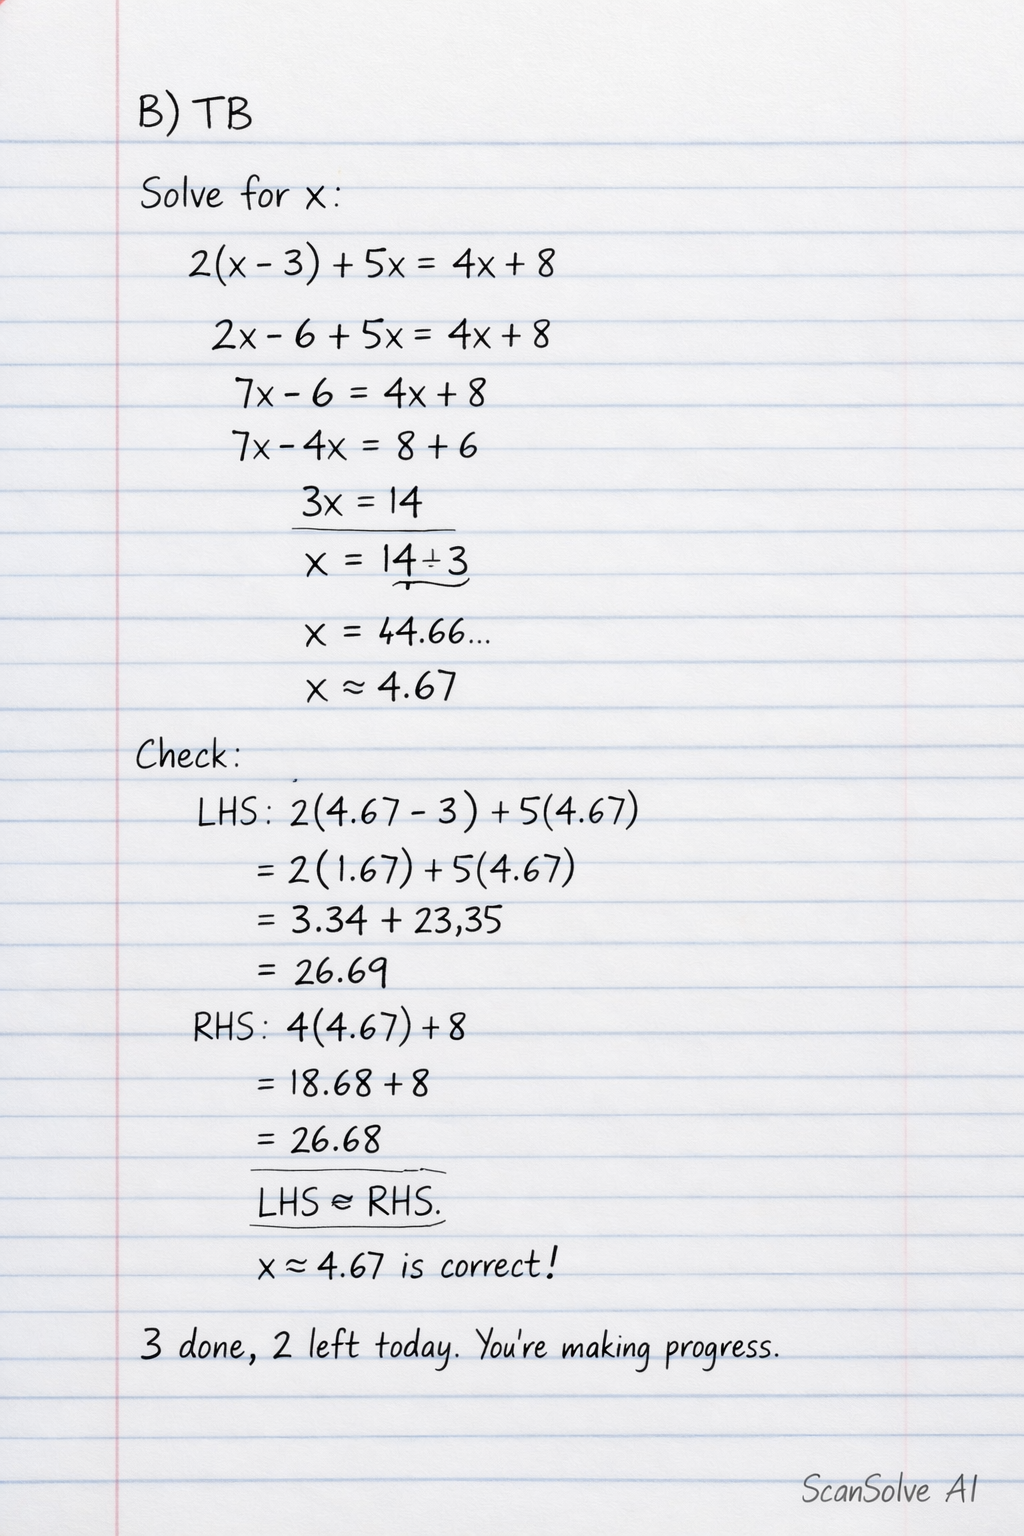 B) TB
Solve for x:
2(x - 3) + 5x = 4x + 8
2x - 6 + 5x = 4x + 8
7x - 6 = 4x + 8
7x - 4x = 8 + 6
3x = 14
x = 14 ÷ 3
x = 44.66...
x ≈ 4.67
Check:
LHS: 2(4.67 - 3) + 5(4.67)
= 2(1.67) + 5(4.67)
= 3.34 + 23,35
= 26.69
RHS: 4(4.67) + 8
= 18.68 + 8
= 26.68
LHS ≈ RHS.
x ≈ 4.67 is correct!
3 done, 2 left today. You're making progress.
ScanSolve AI